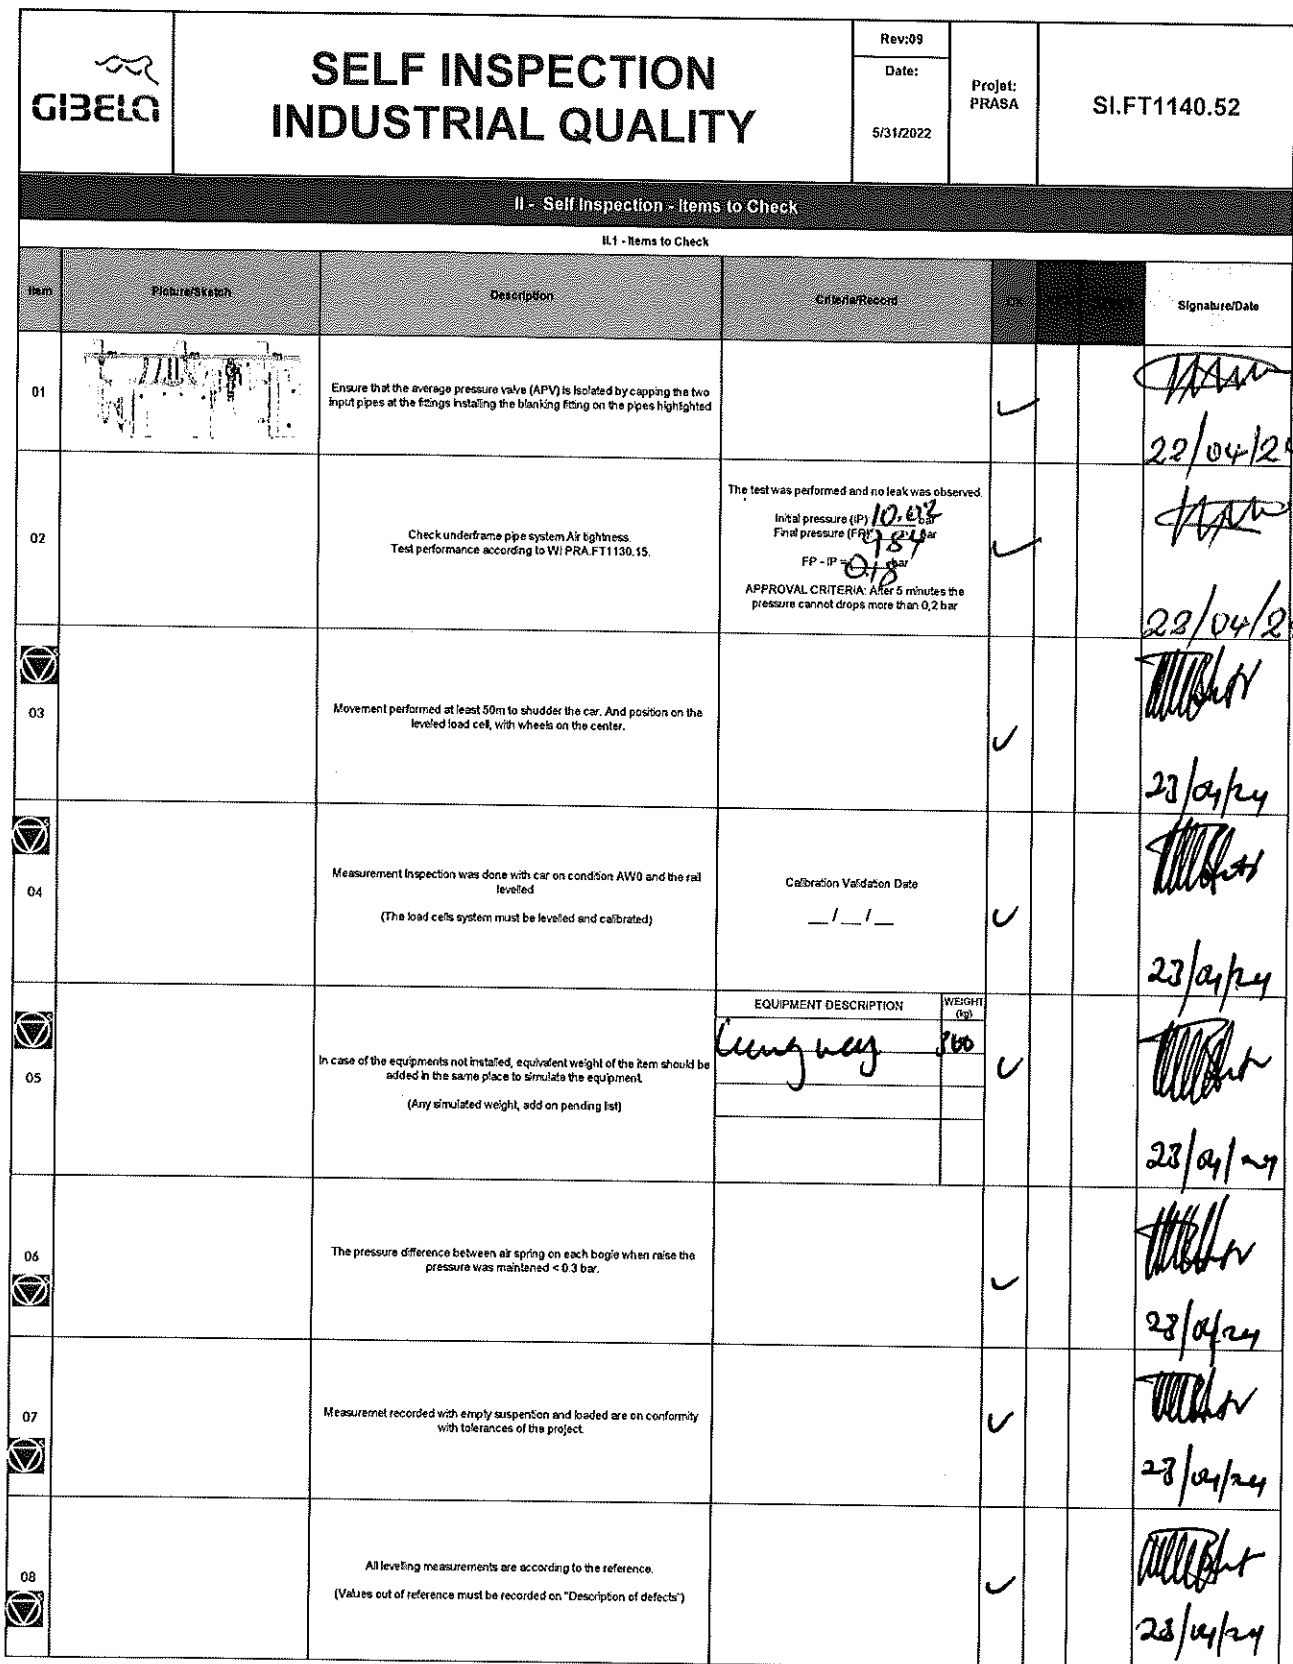 GIBELA
SELF INSPECTION
INDUSTRIAL QUALITY
Rev:09
Date:
5/31/2022
Projet:
PRASA
SI.FT1140.52
II - Self Inspection - Items to Check
II.1 - Items to Check
Item
Picture/Sketch
Description
Criteria/Record
OK
Signature/Date
01
Ensure that the average pressure valve (APV) is isolated by capping the two
input pipes at the fittings installing the blanking fitting on the pipes highlighted
22/04/2
02
Check underframe pipe system Air tightness.
Test performance according to WI PRA.FT1130.15.
The test was performed and no leak was observed.
Initial pressure (IP) bar
Final pressure (FP) bar
FP - IP = 0,18 bar
APPROVAL CRITERIA: After 5 minutes the
pressure cannot drops more than 0,2 bar
22/04/2
03
Movement performed at least 50m to shudder the car. And position on the
leveled load cell, with wheels on the center.
23/04/24
04
Measurement Inspection was done with car on condition AW0 and the rail
levelled
(The load cells system must be levelled and calibrated)
Calibration Validation Date
__ / __ / __
23/04/24
05
In case of the equipments not installed, equivalent weight of the item should be
added in the same place to simulate the equipment
(Any simulated weight, add on pending list)
EQUIPMENT DESCRIPTION
WEIGHT
(kg)
23/04/24
06
The pressure difference between air spring on each bogie when raise the
pressure was maintened < 0.3 bar.
23/04/24
07
Measuremet recorded with empty suspention and loaded are on conformity
with tolerances of the project.
23/04/24
08
All levelling measurements are according to the reference.
(Values out of reference must be recorded on "Description of defects")
23/04/24